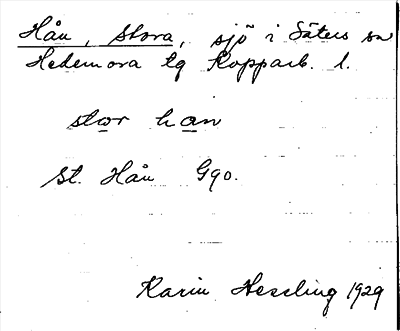 Hån, stora, sjö i Säters sn
Hedemora tg Kopparb. l.
stor han
St. Hån Gqo.
Karin Hessling 1929